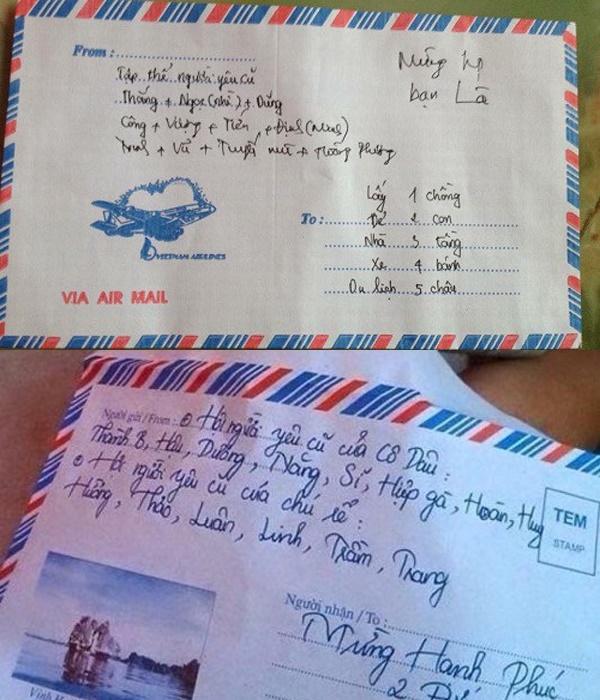 From :
Tập thể người yêu cũ
Thắng + Ngọc (nhè) + Dũng
Công + Vương + Tiến + Định (Ninh)
+ Vũ + + Phương
Mừng
bạn
VIETNAM AIRLINES
VIA AIR MAIL
To :
Lấy 1 chồng
Đẻ 2 con
Nhà 3 tầng
Xe 4 bánh
Du lịch 5 châu
Người gửi / From : Hội người yêu cũ của Cô Dâu :
Thành B, Hải, Dương, Năng, Sĩ, Hiệp gà, Hoàn, Huy
Hội người yêu cũ của chú rể :
Hương, Thảo, Luân, Linh, Trầm, Trang
TEM
STAMP
Người nhận / To :
Mừng Hạnh Phúc
2
Vịnh H